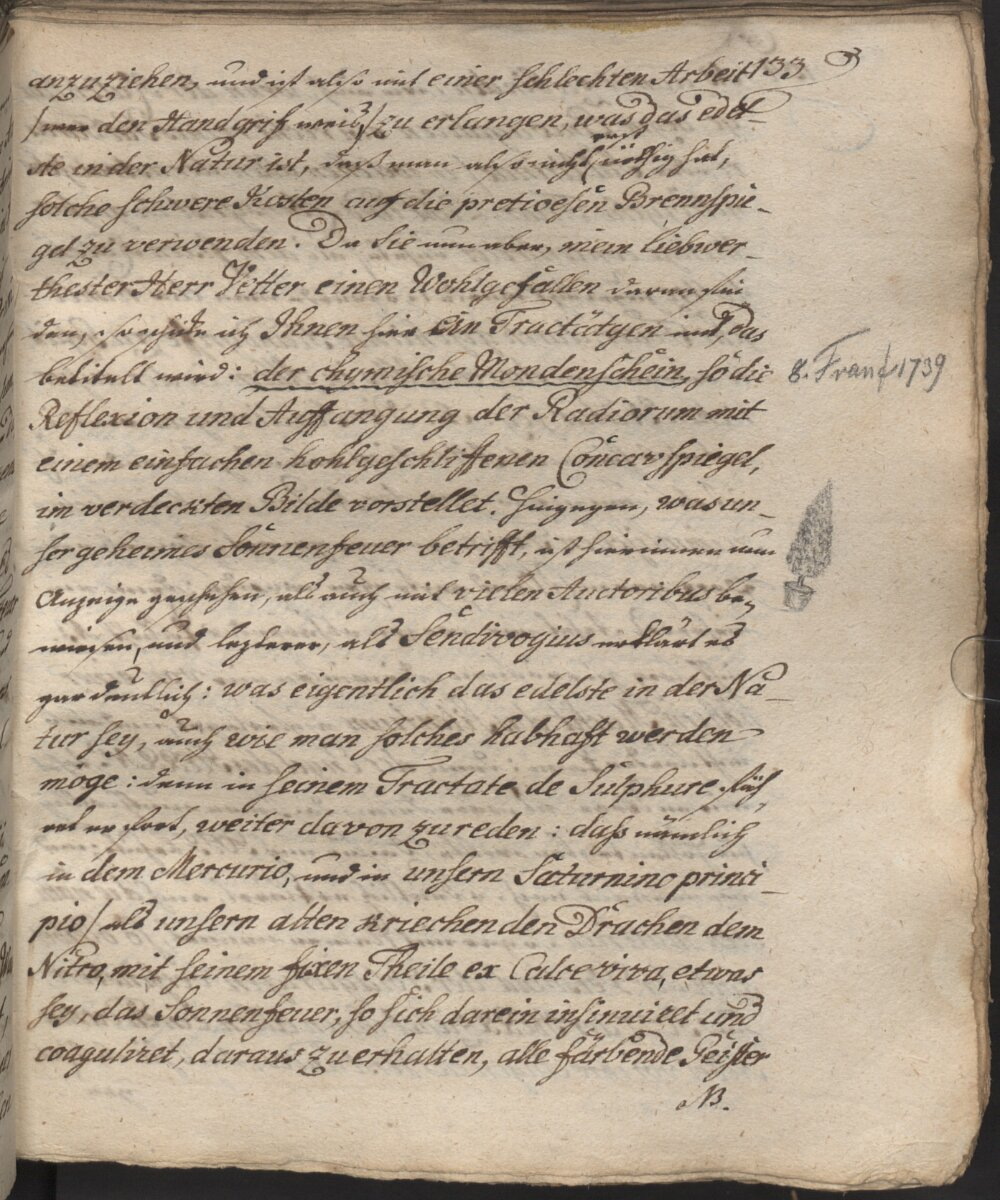 133
anzuziehen, und ist also mit einer schlechten Arbeit
/wer den Handgrif weiß/ zu erlangen, was das edel-
ste in der Natur ist, daß man also nicht erst nöthig hat,
solche schwere Kosten auf die pretioesen Brennspie-
gel zu verwenden. Da Sie nun aber, mein liebwer-
thester Herr Vetter einen Wohlgefallen daran fin
den, so schicke ich Ihnen hier ein Tractätgen mit, das
betitelt wird: der chymische Mondenschein, so die
8. Franf 1739
Reflexion und Auffangung der Radiorum mit
einem einfachen hohlgeschliffenen Concavspiegel,
im verdeckten Bilde vorstellet. Hingegen, was un-
ser geheimes Sonnenfeuer betrifft, ist hierinnen nun
Anzeige geschehen, als auch mit vielen Auctoribus be-
wiesen, und lezterer, als Sendivogius erklärt es
gar deutlich: was eigentlich das edelste in der Na-
tur sey, auch wie man solches habhaft werden
möge: denn in seinem Tractate de Sulphure füh
ret er fort, weiter davon zu reden: daß nämlich
in dem Mercurio, und in unsern Saturnino princi-
pio/ als unsern alten kriechenden Drachen dem
Nitro, mit seinem fixen Theile ex Calce viva, etwas
sey, das Sonnenfeuer, so sich darein insinuiret und
coaguliret, daraus zu erhalten, alle färbende Geister
NB.